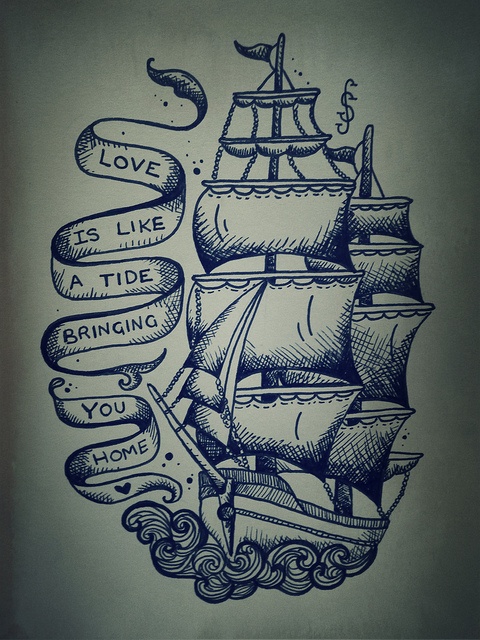 LOVE
IS LIKE
A TIDE
BRINGING
YOU
HOME